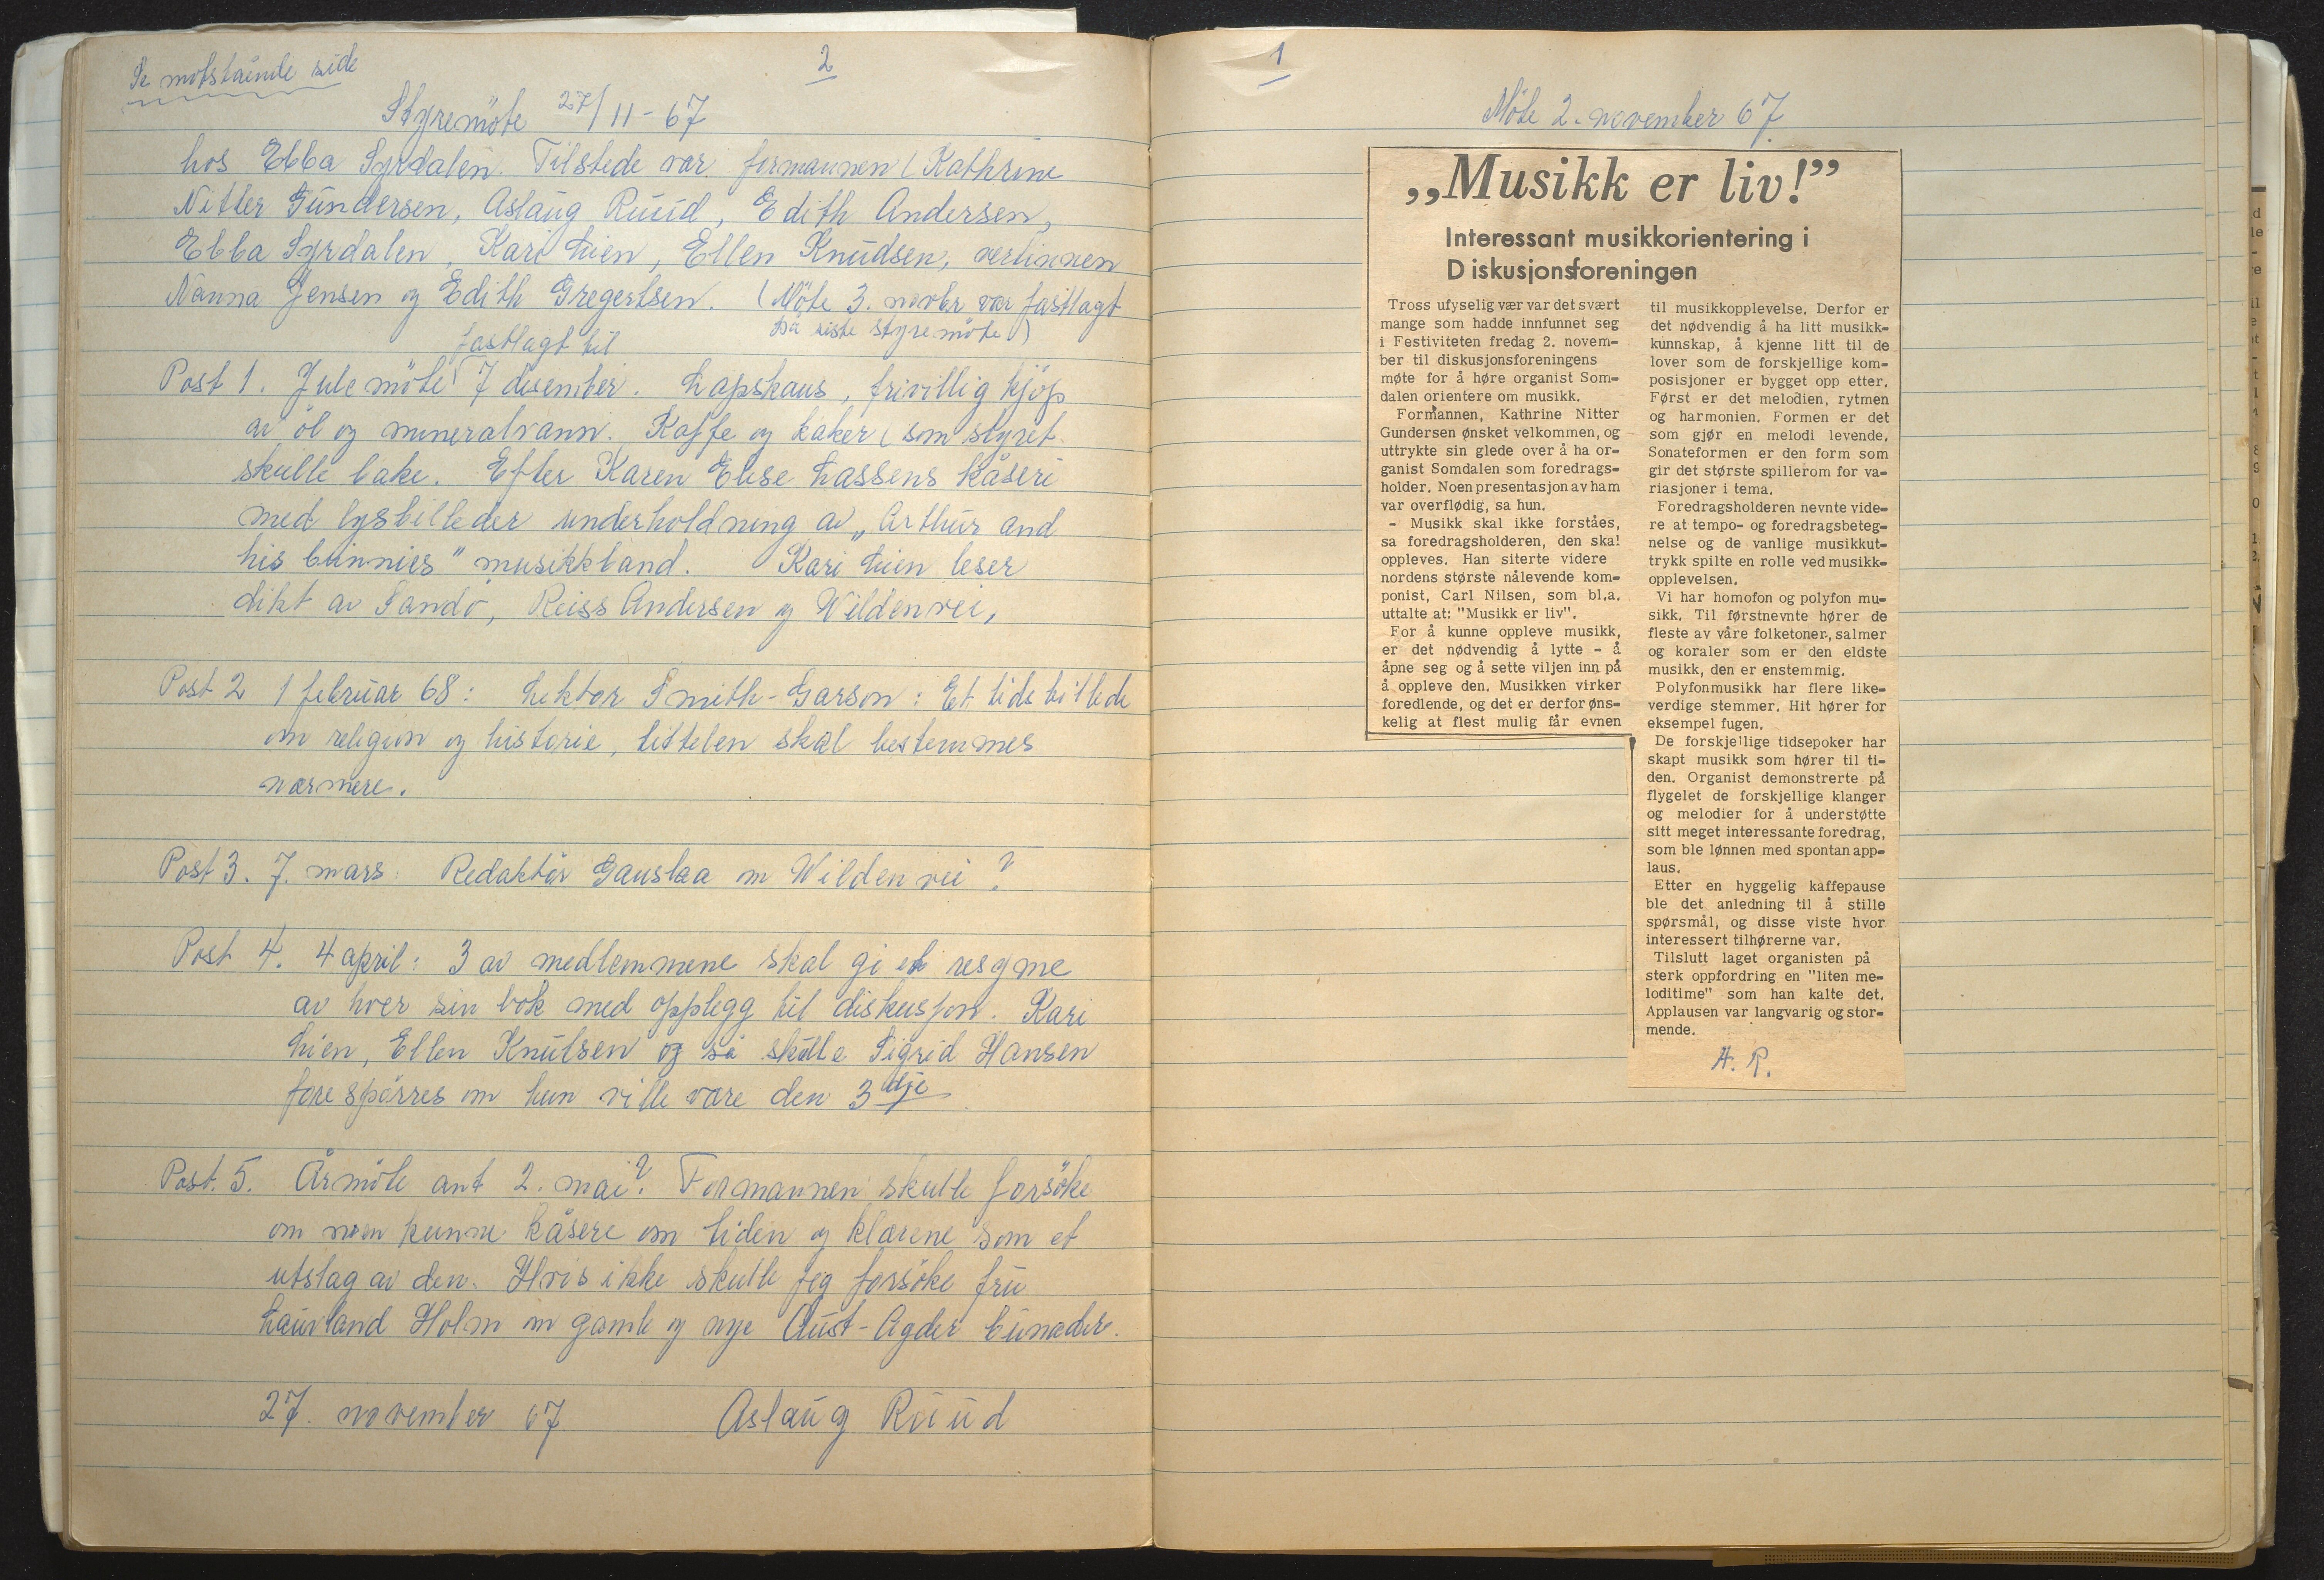 Se motstående side
2
Styremöte 27/11-67
hos Ebba Syrdalen. Tilstede var formannen (Kathrine
Nitter Gundersen, Aslaug Ruud, Edith Andersen,
Ebba Syrdalen, Kari Lien, Ellen Knudsen, vertinnen
Nanna Jensen og Edith Gregertsen. (Möte 3. novbr var fastlagt
på siste styremöte)
fastlagt til
Post 1. Julemöte 7 desember. Lapskaus, frivillig kjöp
av öl og mineralvann. Kaffe og kaker (som styret
skulle bake. Efter Karen Elise Lassens kåseri
med lysbilleder underholdning av „Arthur and
his bunnies" musikkband. Kari Lien leser
dikt av Sandö, Reiss Andersen og Wildenvei,
Post 2 1 februar 68: Lektor Smith-Garson: Et tidsbillede
om religion og historie, tittelen skal bestemmes
nærmere.
Post 3. 7. mars: Redaktör Gauslaa om Wildenvei?
Post 4. 4 april: 3 av medlemmene skal gi et resyme
av hver sin bok med opplegg til diskusjon. Kari
Lien, Ellen Knutsen og så skulle Sigrid Hansen
forespörres om hun ville være den 3dje
Post. 5. Årmöte ant 2. mai? Formannen skulle forsöke
om noen kunne kåsere om tiden og klærene som et
utslag av den. Hvis ikke skulle jeg forsöke fru
Lauvland Holm om gamle og nye Aust-Agder bunader.
27. november 67 Aslaug Ruud
1
Möte 2. november 67
„Musikk er liv!”
Interessant musikkorientering i
Diskusjonsforeningen
Tross ufyselig vær var det svært
mange som hadde innfunnet seg
i Festiviteten fredag 2. novem-
ber til diskusjonsforeningens
møte for å høre organist Som-
dalen orientere om musikk.
Formannen, Kathrine Nitter
Gundersen ønsket velkommen, og
uttrykte sin glede over å ha or-
ganist Somdalen som foredrags-
holder. Noen presentasjon av ham
var overflødig, sa hun.
- Musikk skal ikke forståes,
sa foredragsholderen, den skal
oppleves. Han siterte videre
nordens største nålevende kom-
ponist, Carl Nilsen, som bl.a.
uttalte at: "Musikk er liv".
For å kunne oppleve musikk,
er det nødvendig å lytte - å
åpne seg og å sette viljen inn på
å oppleve den. Musikken virker
foredlende, og det er derfor øns-
kelig at flest mulig får evnen
til musikkopplevelse. Derfor er
det nødvendig å ha litt musikk-
kunnskap, å kjenne litt til de
lover som de forskjellige kom-
posisjoner er bygget opp etter.
Først er det melodien, rytmen
og harmonien. Formen er det
som gjør en melodi levende.
Sonateformen er den form som
gir det største spillerom for va-
riasjoner i tema.
Foredragsholderen nevnte vide-
re at tempo- og foredragsbeteg-
nelse og de vanlige musikkut-
trykk spilte en rolle ved musikk-
opplevelsen.
Vi har homofon og polyfon mu-
sikk. Til førstnevnte hører de
fleste av våre folketoner, salmer
og koraler som er den eldste
musikk, den er enstemmig.
Polyfonmusikk har flere like-
verdige stemmer. Hit hører for
eksempel fugen.
De forskjellige tidsepoker har
skapt musikk som hører til ti-
den. Organist demonstrerte på
flygelet de forskjellige klanger
og melodier for å understøtte
sitt meget interessante foredrag,
som ble lønnen med spontan app-
laus.
Etter en hyggelig kaffepause
ble det anledning til å stille
spørsmål, og disse viste hvor
interessert tilhørerne var.
Tilslutt laget organisten på
sterk oppfordring en "liten me-
loditime" som han kalte det.
Applausen var langvarig og stor-
mende.
A. R.